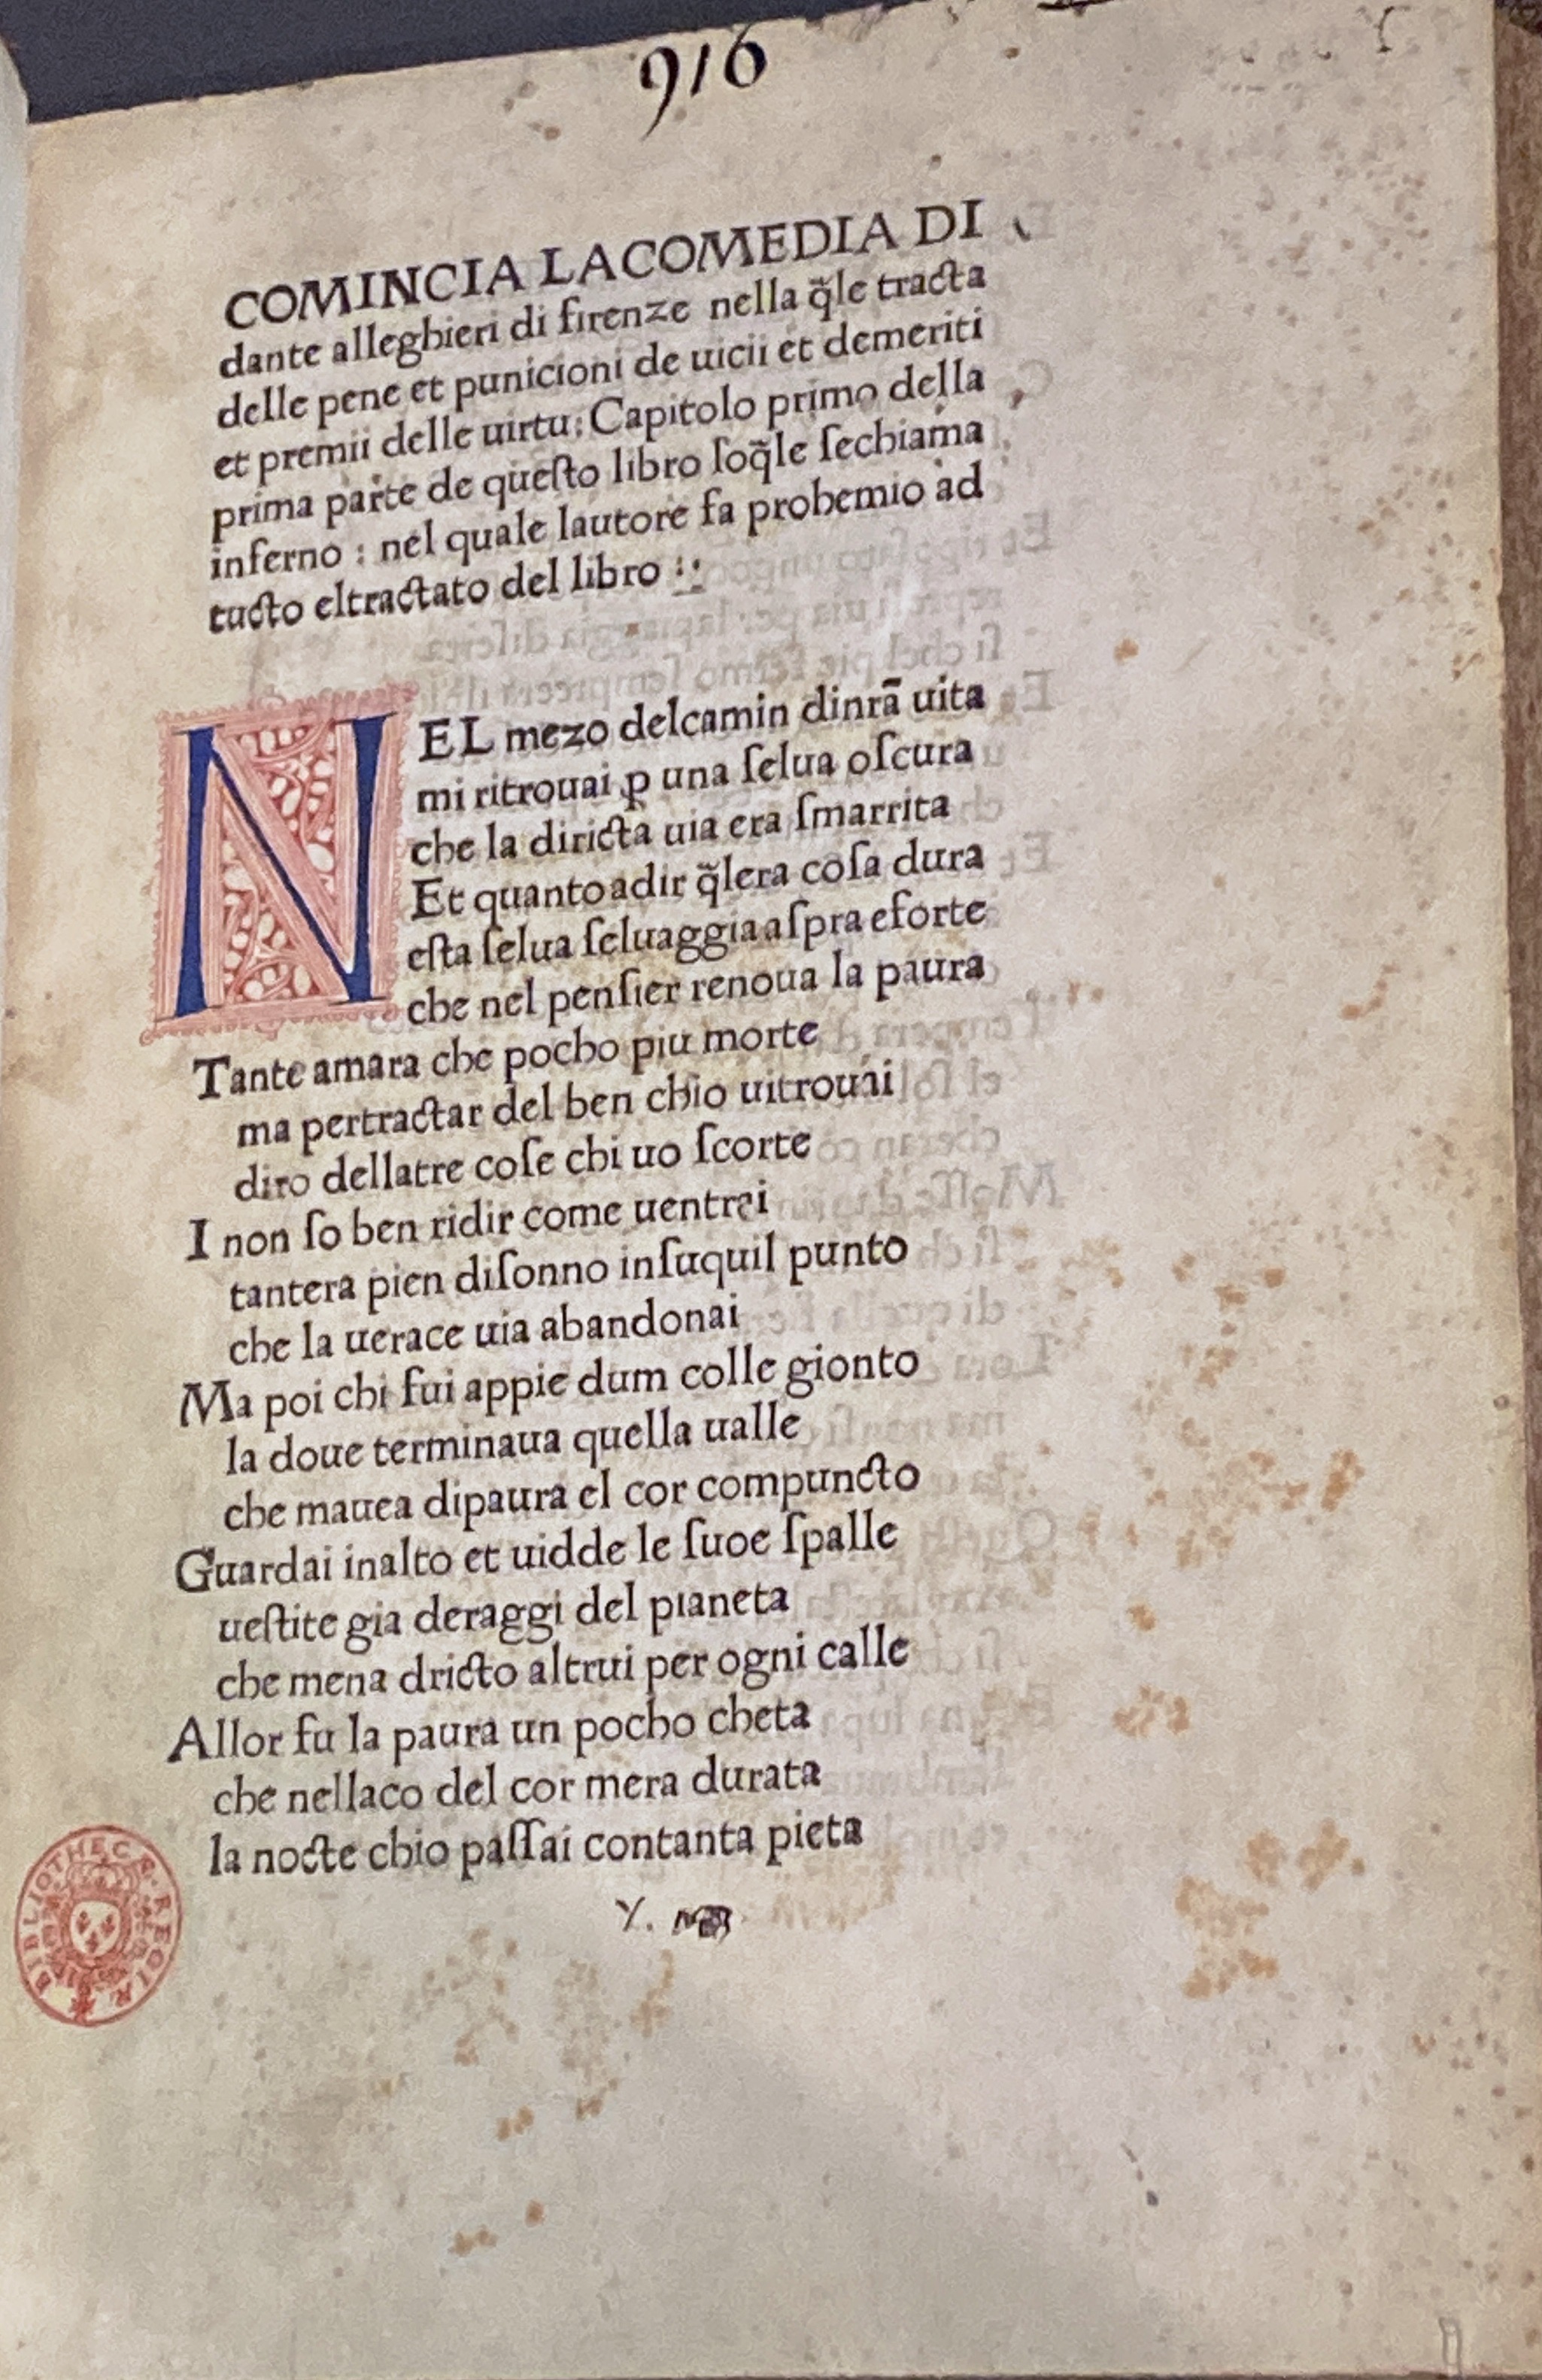 916
COMINCIA LACOMEDIA DI
dante alleghieri di firenze nella q̃le tracta
delle pene et punicioni de uicii et demeriti
et premii delle uirtu: Capitolo primo della
prima parte de queſto libro loq̃le ſechiama
inferno : nel quale lautore fa prohemio ad
tucto eltractato del libro :·
NEL mezo delcamin dinrã uita
mi ritrouai ꝑ una ſelua oſcura
che la diricta uia era ſmarrita
Et quanto adir q̃lera coſa dura
eſta ſelua ſeluaggia aſpra eforte
che nel penſier renoua la paura
Tante amara che pocho piu morte
ma pertractar del ben chio uitrouai
diro dellatre coſe chi uo ſcorte
I non ſo ben ridir come uentrai
tantera pien diſonno inſuquil punto
che la uerace uia abandonai
Ma poi chi fui appie dum colle gionto
la doue terminaua quella ualle
che mauea dipaura el cor compuncto
Guardai inalto et uidde le ſuoe ſpalle
ueſtite gia deraggi del pianeta
che mena dricto altrui per ogni calle
Allor fu la paura un pocho cheta
che nellaco del cor mera durata
la nocte chio paſſai contanta pieta
Y.
BIBLIOTHECÆ REGIÆ